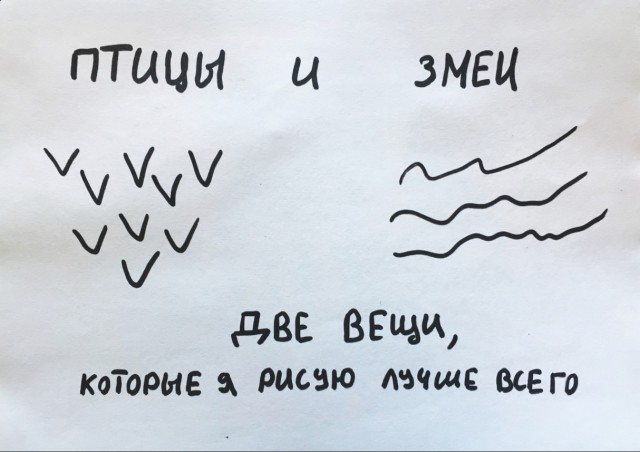 ПТИЦЫ И ЗМЕИ
ДВЕ ВЕЩИ,
КОТОРЫЕ Я РИСУЮ ЛУЧШЕ ВСЕГО